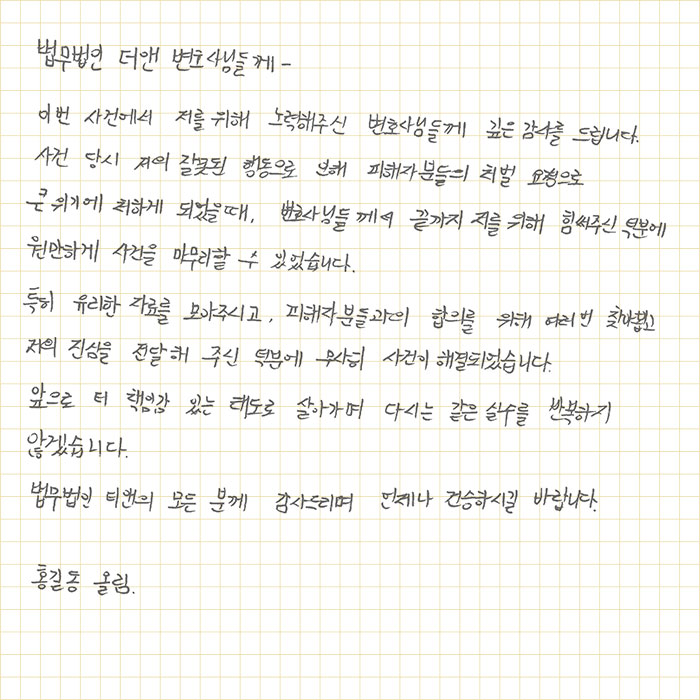 법무법인 더앤 변호사님들께-
이번 사건에서 저를 위해 노력해주신 변호사님들께 깊은 감사를 드립니다.
사건 당시 저의 잘못된 행동으로 인해 피해자분들의 처벌 요청으로
큰 위기에 처하게 되었을때, 변호사님들 께서 끝까지 저를 위해 힘써주신 덕분에
원만하게 사건을 마무리할 수 있었습니다.
특히 유리한 자료를 모아주시고, 피해자분들과의 합의를 위해 여러번 찾아뵙고
저의 진심을 전달해 주신 덕분에 무사히 사건이 해결되었습니다.
앞으로 더 책임감 있는 태도로 살아가며 다시는 같은 실수를 반복하지
않겠습니다.
법무법인 더앤의 모든 분께 감사드리며 언제나 건승하시길 바랍니다.
홍길동 올림.